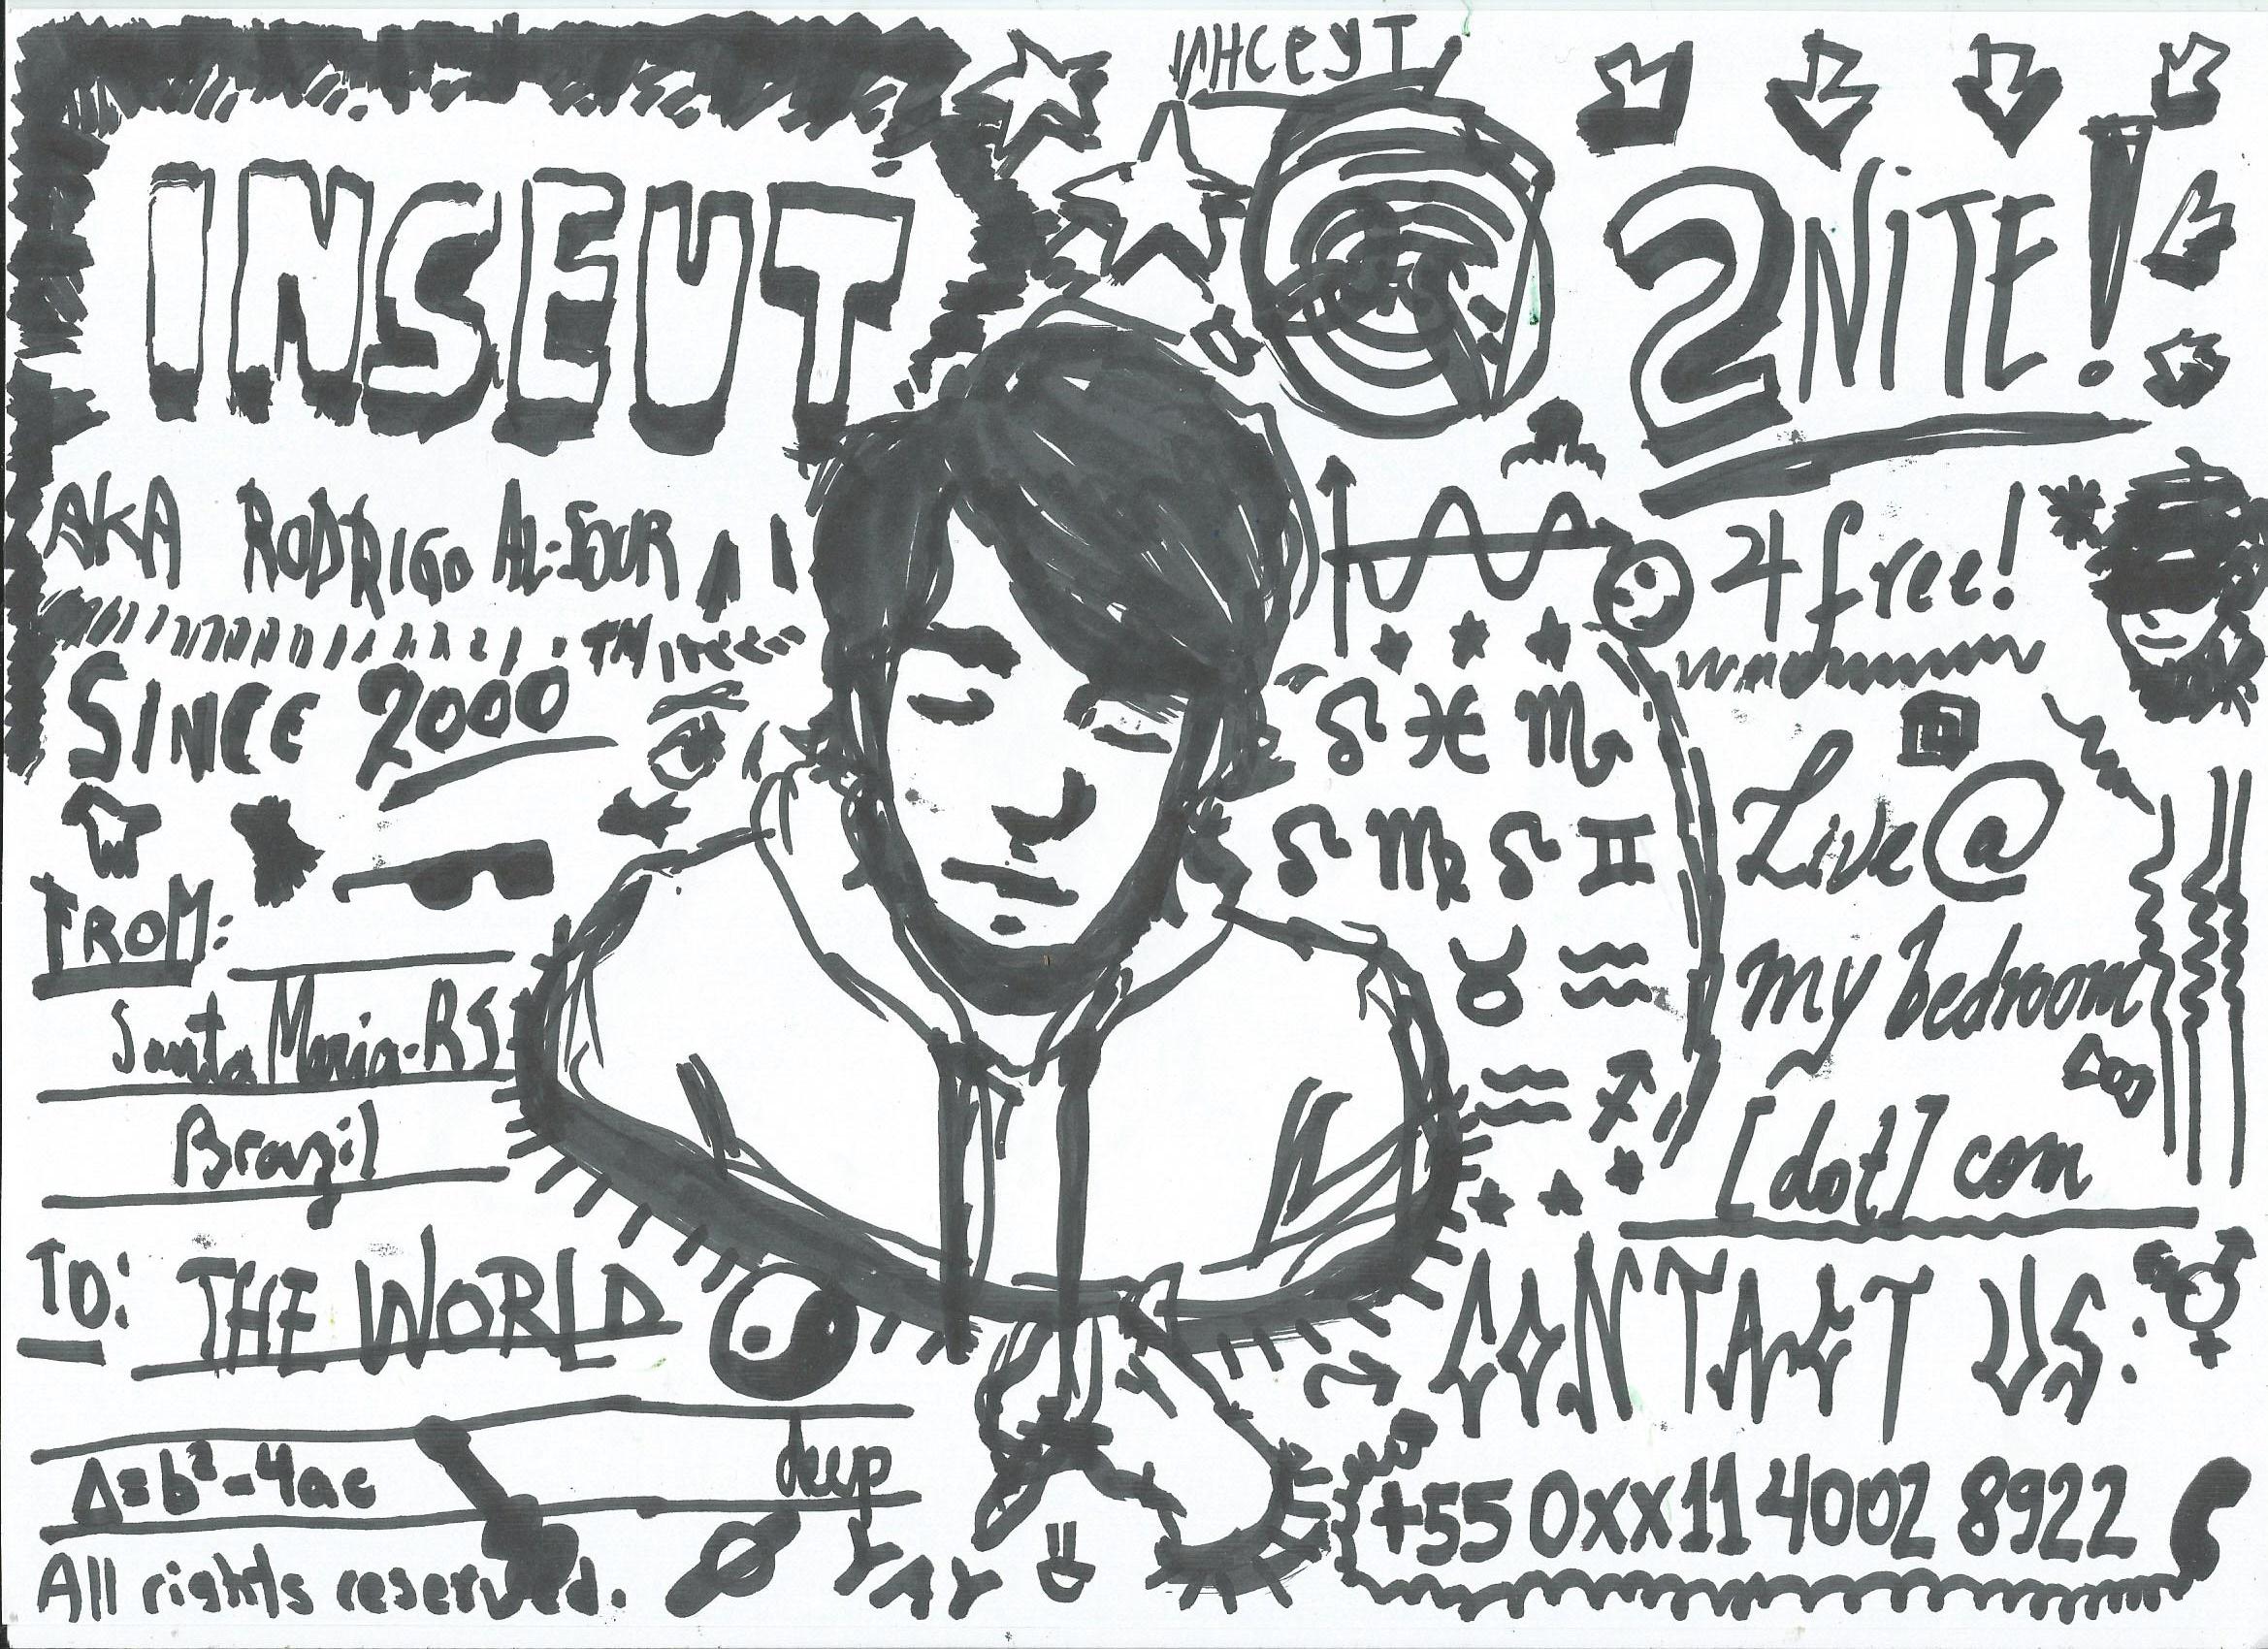 INSEUT
ИНСЕУТ
2NiTE!
AKA RODRIGO AL-SOUR
TM
SINCE 2000
4 free!
♌ ♓ ♏
♌ ♍ ♌ ♊
♉ ♒
♒ ♐
Live@
my bedroom
[dot] com
FROM:
Santa Maria-RS
Brazil
TO: THE WORLD
CONTACT US:
+55 0xx11 4002 8922
Δ=b²-4ac
deep
All rights reserved.